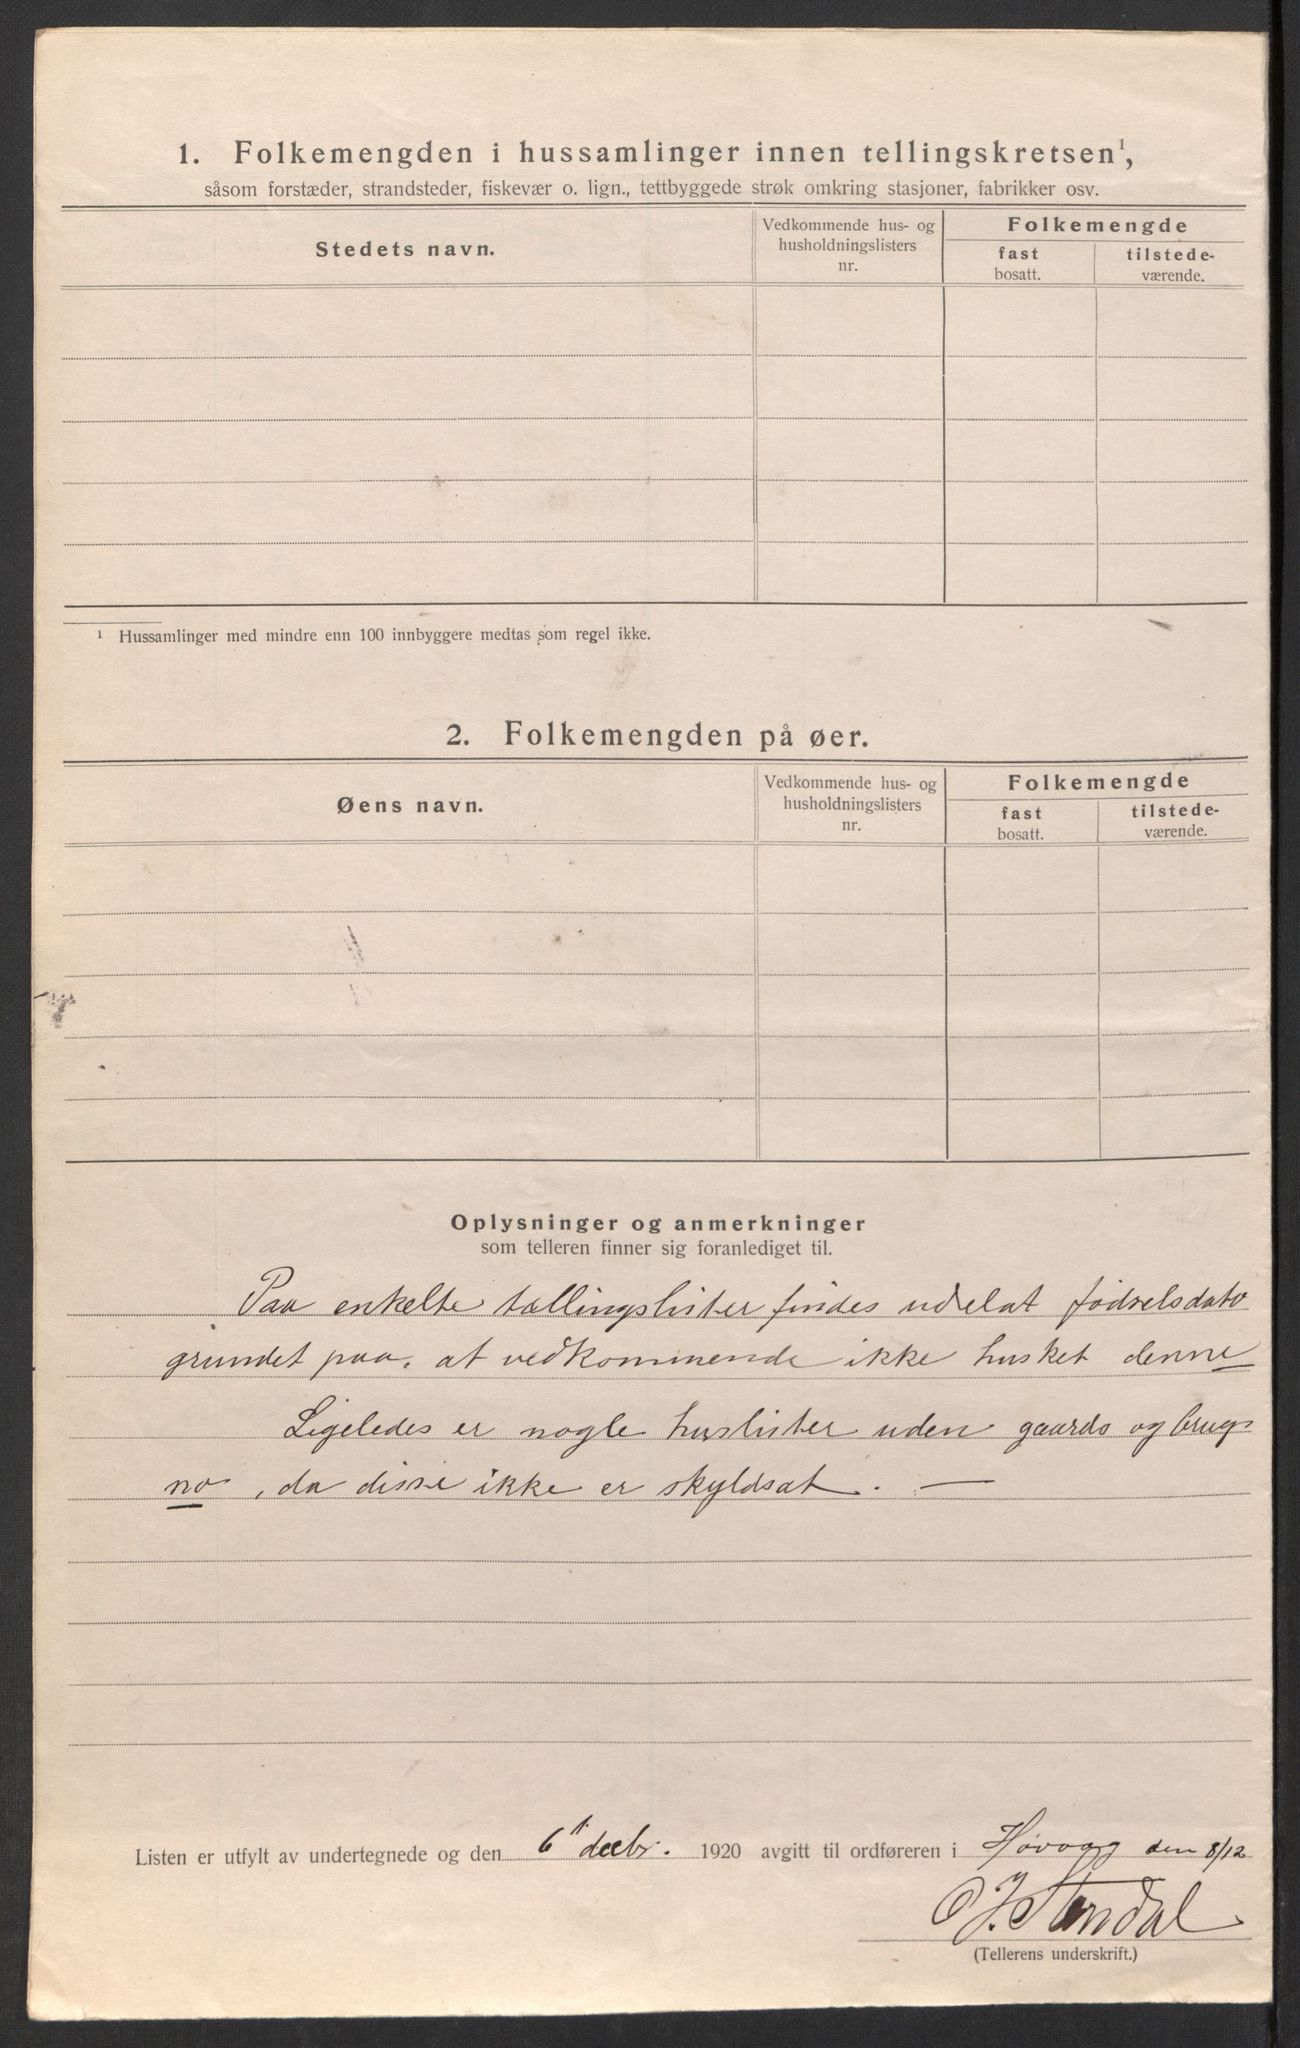 1. Folkemengden i hussamlinger innen tellingskretsen¹,
såsom forstæder, strandsteder, fiskevær o. lign., tettbyggede strøk omkring stasjoner, fabrikker osv.
Stedets navn.
Vedkommende hus- og
husholdningslisters
nr.
Folkemengde
fast
bosatt.
tilstede-
værende.
¹ Hussamlinger med mindre enn 100 innbyggere medtas som regel ikke.
2. Folkemengden på øer.
Øens navn.
Vedkommende hus- og
husholdningslisters
nr.
Folkemengde
fast
bosatt.
tilstede-
værende.
Oplysninger og anmerkninger
som telleren finner sig foranlediget til.
Paa enkelte tællingslister findes udelat fødselsdato
grundet paa, at vedkommende ikke husket denne
Ligeledes er nogle huslister uden gaards og brugs
no, da disse ikke er skyldsat. —
Listen er utfylt av undertegnede og den 6 decbr. 1920 avgitt til ordføreren i Høvaag den 8/12
(Tellerens underskrift.)